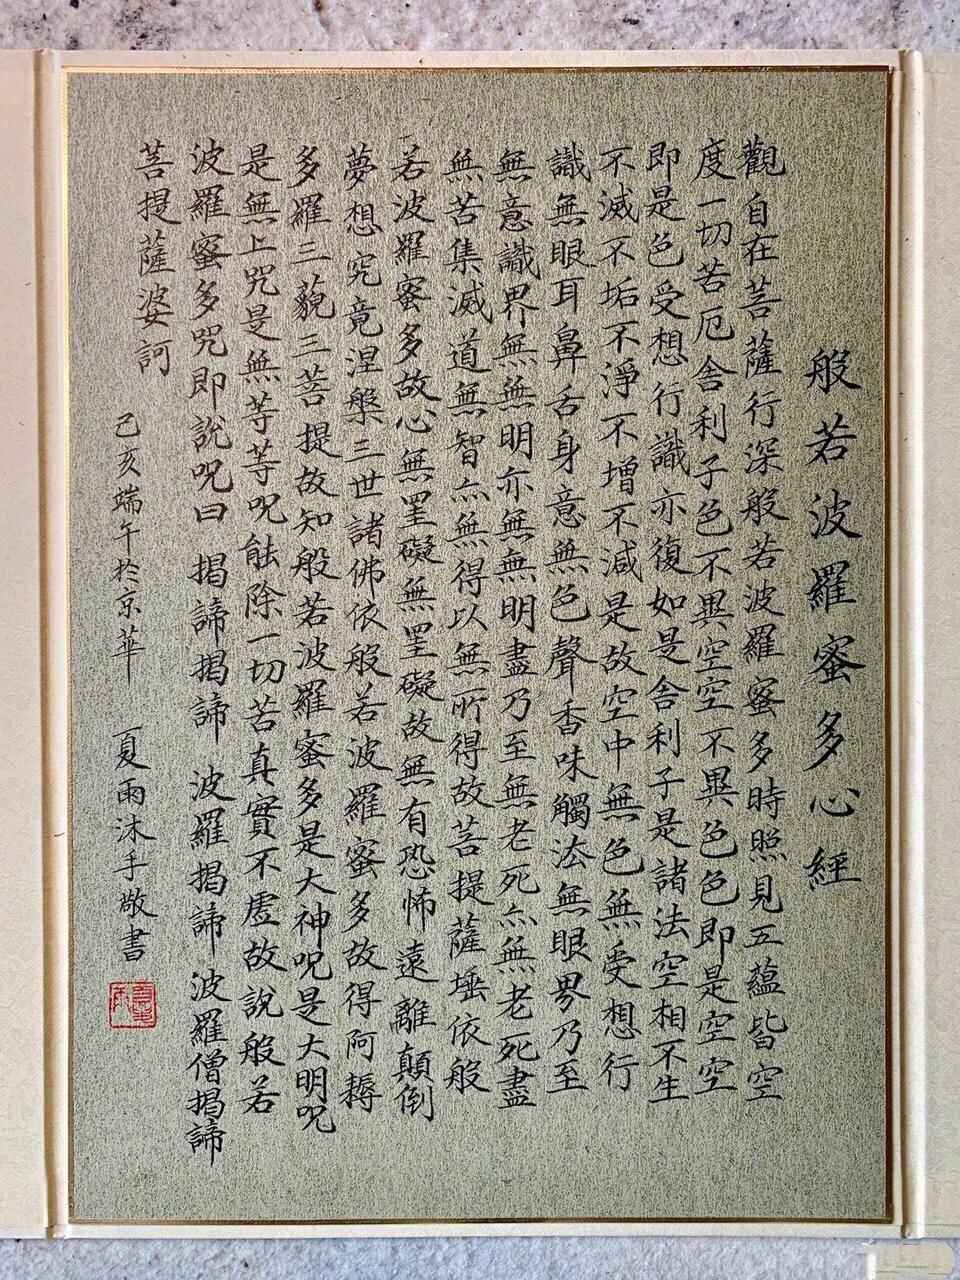 般若波羅蜜多心經
觀自在菩薩行深般若波羅蜜多時照見五蘊皆空
度一切苦厄舍利子色不異空空不異色色即是空空
即是色受想行識亦復如是舍利子是諸法空相不生
不滅不垢不淨不增不減是故空中無色無受想行
識無眼耳鼻舌身意無色聲香味觸法無眼界乃至
無意識界無無明亦無無明盡乃至無老死亦無老死盡
無苦集滅道無智亦無得以無所得故菩提薩埵依般
若波羅蜜多故心無罣礙無罣礙故無有恐怖遠離顛倒
夢想究竟涅槃三世諸佛依般若波羅蜜多故得阿耨
多羅三藐三菩提故知般若波羅蜜多是大神咒是大明咒
是無上咒是無等等呪能除一切苦真實不虛故說般若
波羅蜜多咒即說呪曰 揭諦揭諦 波羅揭諦 波羅僧揭諦
菩提薩婆訶
己亥端午於京華 夏雨沐手敬書